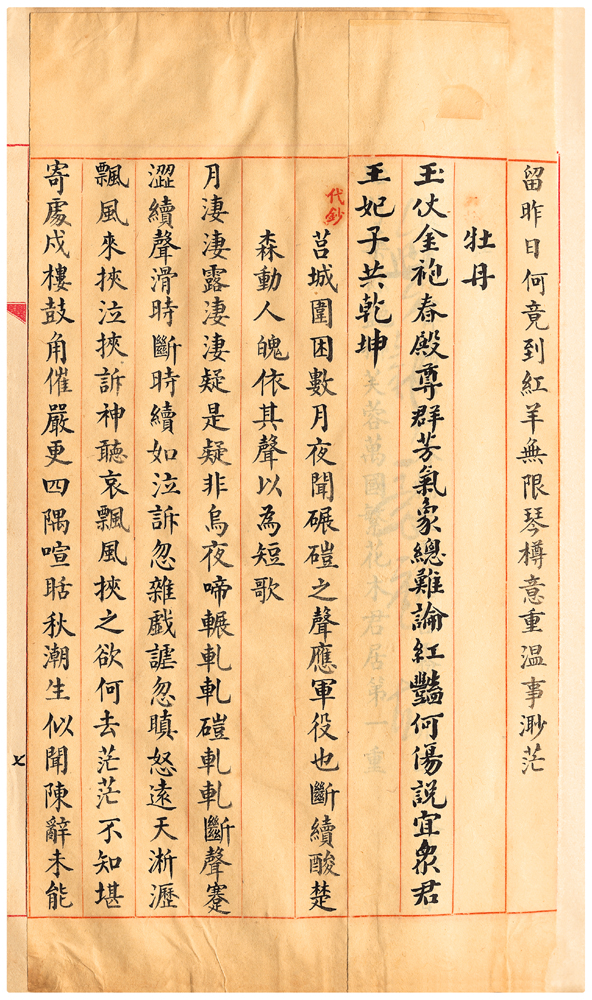 留昨日何竟到紅羊無限琴樽意重溫事渺茫
牡丹
玉仗金袍春殿尊群芳氣象總難論紅豔何傷說宜衆君
王妃子共乾坤
芙蓉萬國花木君居第一重
代鈔
莒城圍困數月夜聞碾磑之聲應軍役也斷續酸楚
森動人魄依其聲以為短歌
月淒淒露淒淒疑是疑非烏夜啼輾軋軋磑軋軋斷聲蹇
澀續聲滑時斷時續如泣訴忽雜戲謔忽瞋怒遠天淅瀝
飄風來挾泣挾訴神聽哀飄風挾之欲何去茫茫不知堪
寄處戍樓鼓角催嚴更四隅喧聒秋潮生似聞陳辭未能